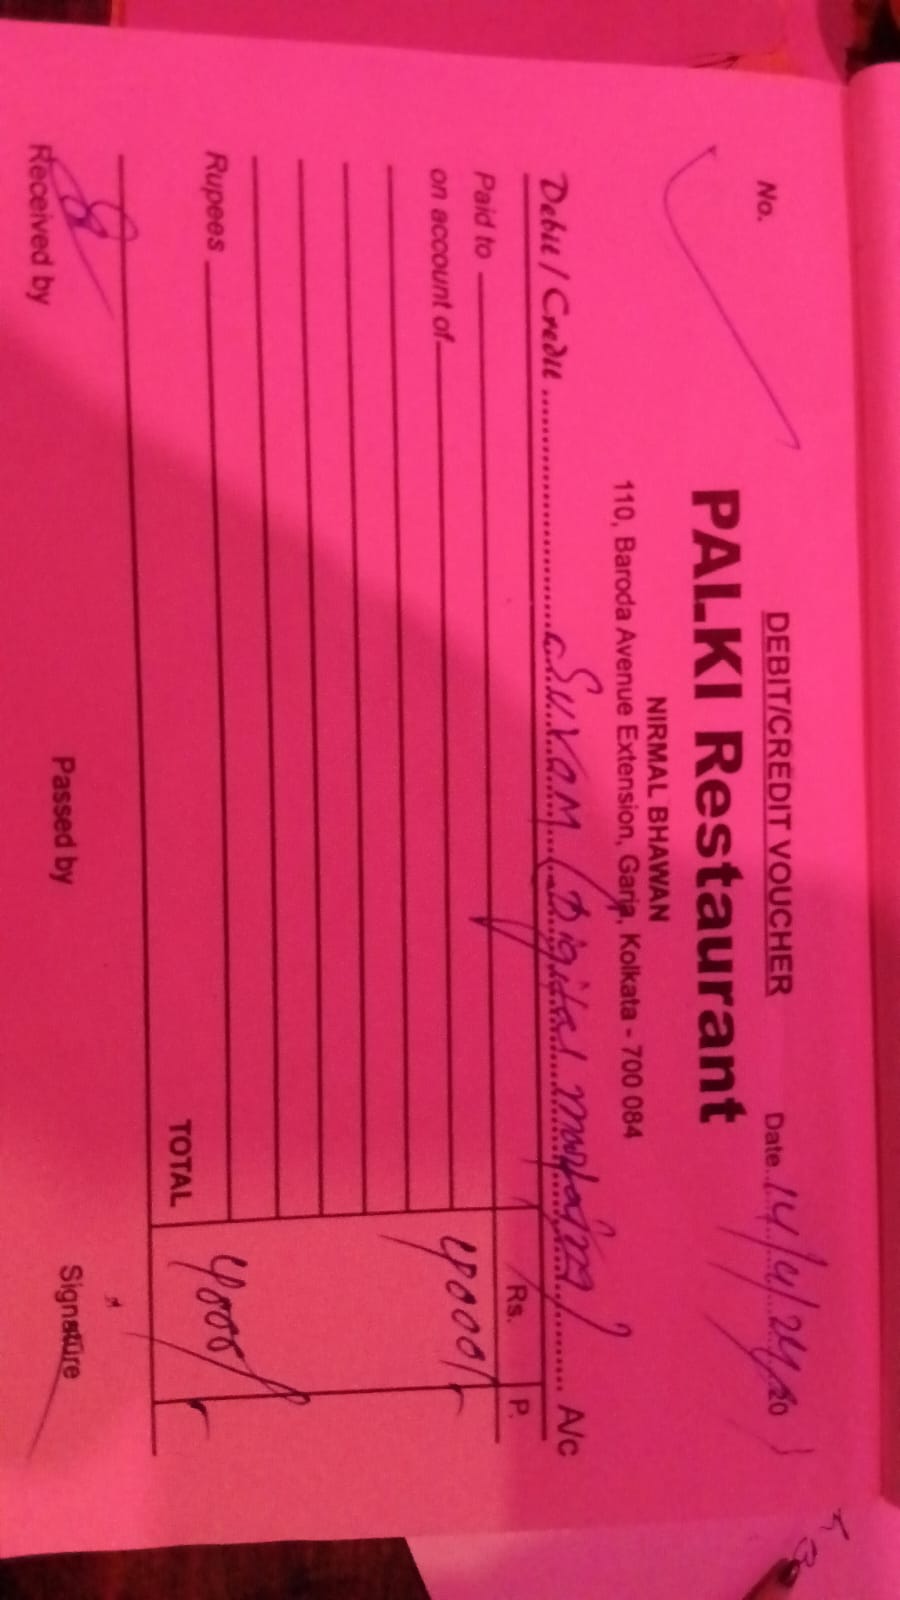 DEBIT/CREDIT VOUCHER
No. Date 14/4/24 20
PALKI Restaurant
NIRMAL BHAWAN
110, Baroda Avenue Extension, Garia, Kolkata - 700 084
Debit / Credit Suvam (Digital A/c
Paid to Rs. P.
on account of 4000/-
Rupees
TOTAL 4000/-
Received by Passed by Signature